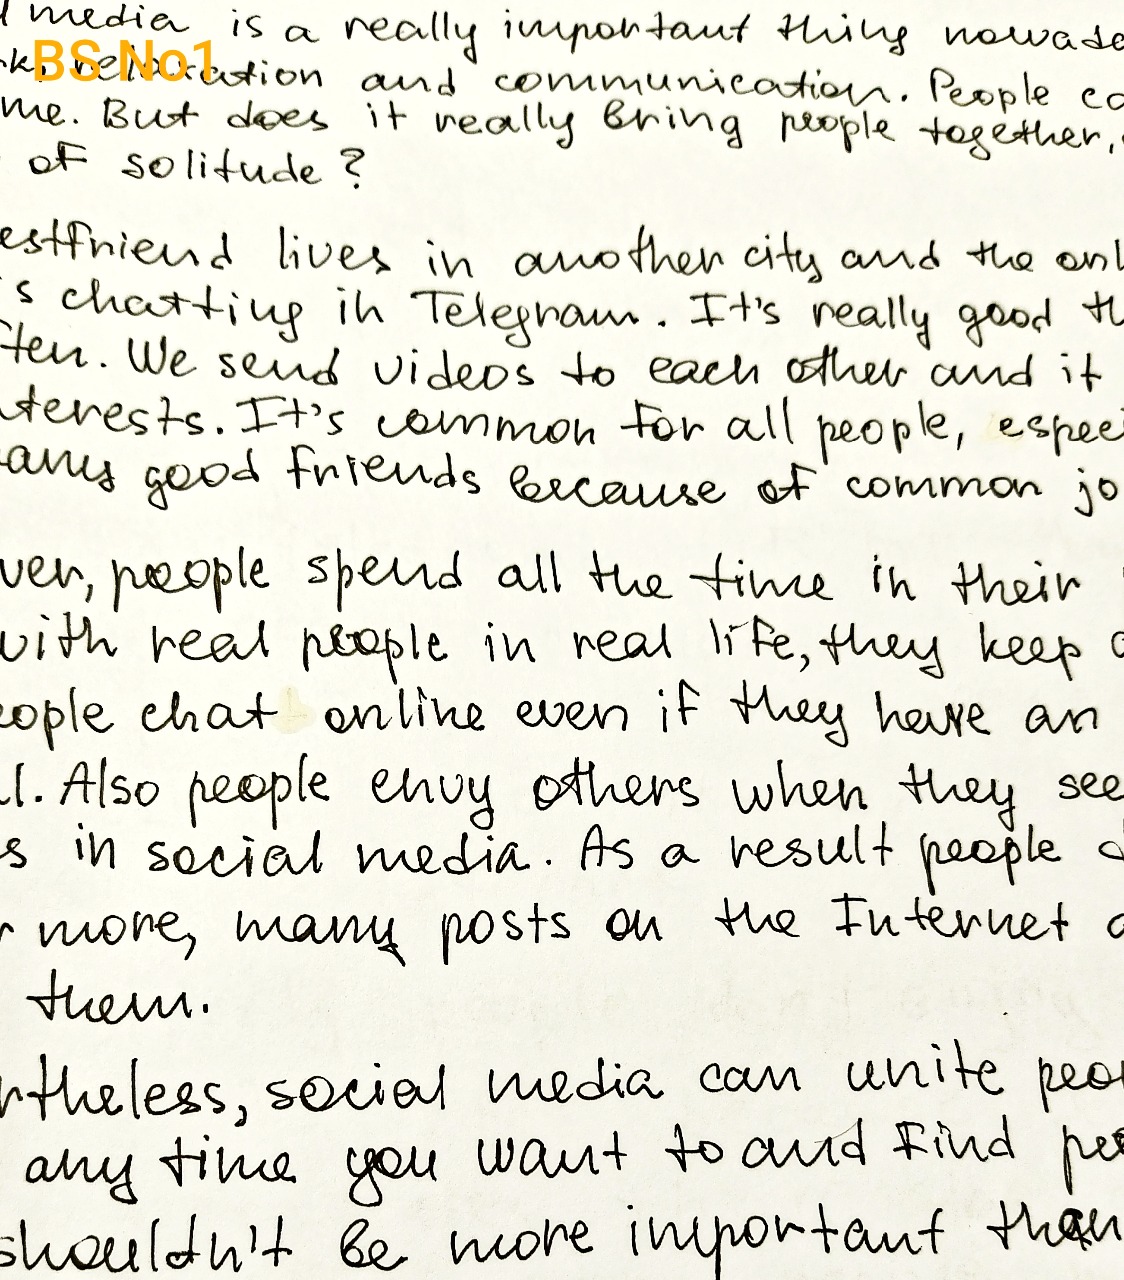 media is a really important thing nowade
BS No1
relaxation and communication. People co
me. But does it really bring people together,
of solitude?
estfriend lives in another city and the onl
's chatting in Telegram. It's really good th
ften. We send videos to each other and it
terests. It's common for all people, especi
any good friends because of common jo
ver, people spend all the time in their
with real people in real life, they keep
eople chat online even if they have an
l. Also people envy others when they see
s in social media. As a result people d
r more, many posts on the Internet a
them.
rtheless, social media can unite peop
any time you want to and find peo
shouldn't be more important than